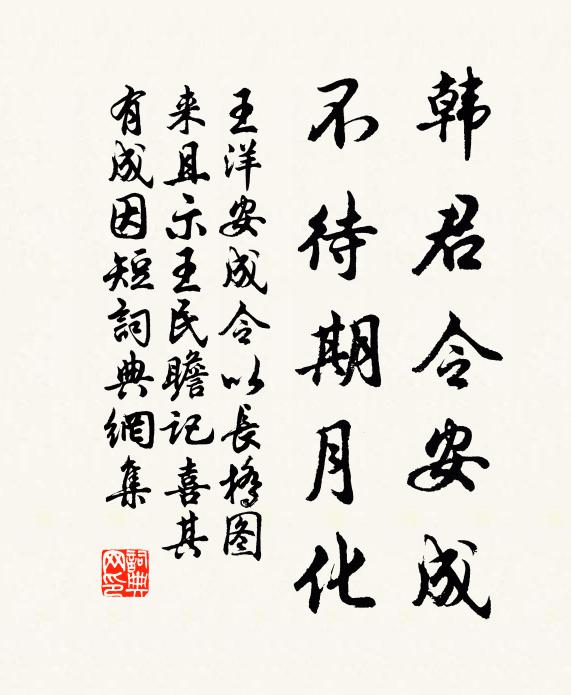 韩君令安成
不待期月化
王洋安成令以長橋图
来且示王民瞻记喜其
有成因短詞典網集
詞典網印